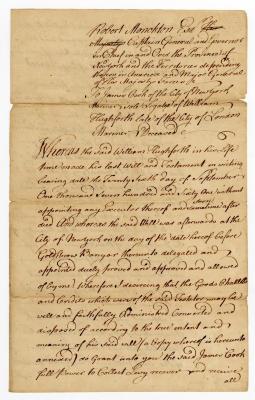 Robert Monckton Esqr
Captain General and Governor
in Chief in and Over the Province of
New York and the Territories depending
thereon in America and Major General
of his Majesty's Forces &c
To James Cook of the City of New York
Mariner sole Legatee of William
Flughforth late of the City of London
Mariner Deceased
Whereas the said William Flughforth in his life
time made his last Will and Testament in writing
bearing date the Twenty Sixth day of September
One thousand Seven hundred and Sixty One without
appointing any Executor thereof and Sometime after
died And whereas the said Will was afterwards at the
City of New York on the day of the date hereof before
Goldsbrow Banyar thereunto delegated and
appointed duely proved and approved and allowed
of by me Wherefore I desireing that the Goods Chattells
and Credits which were of the said Testator may be
well and faithfully Administred Converted and
disposed of according to the true intent and
meaning of his said Will (a Copy whereof is hereunto
annexed) do Grant unto you the said James Cook
full Power to Collect levy recover and receive
all